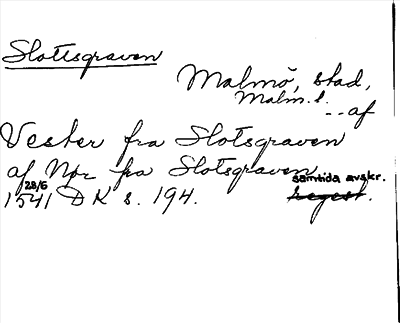 Slottsgraven
Malmö, stad,
Malm. l.
-- af
Vester fra Slotsgraven
af Nør fra Slotsgraven
28/6 samtida avskr.
1541 DK s. 194. regest.